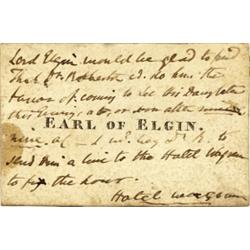 Lord Elgin would be glad to find
that Dr Robertson cd. do him the
honor of coming to see his Daughter
this Evening, at, or soon after
EARL OF ELGIN.
nine, at
send him a line to the Hotel Wagram
to fix the hour.
Hotel Wagram